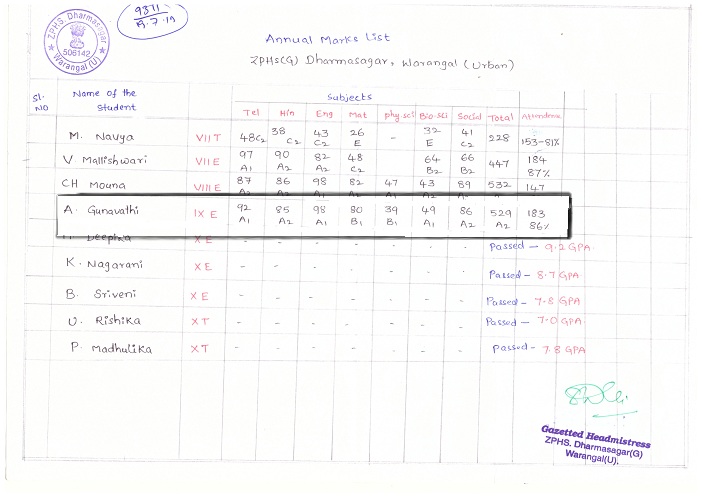 9311
B.7.19
ZPHS. Dharmasagar
506142
Warangal(U)
Annual Marks List
ZPHS(G) Dharmasagar, Warangal (Urban)
Sl. NO Name of the Student Subjects
Tel Hin Eng Mat phy.sci Bio.sci Social Total Attendence
M. Navya VII T 48 C2 38 C2 43 C2 26 E - 32 E 41 C2 228 153-81%
V Mallishwari VII E 97 A1 90 A2 82 A2 48 C2 64 B2 66 B2 447 184 87%
CH Mouna VIII E 87 86 98 82 47 43 89 532 147
A. Gunavathi IX E 92 A1 85 A2 98 A1 80 B1 39 B1 49 A1 86 A2 529 A2 183 86%
Deepika X E - - - - - - - Passed - 9.2 GPA.
K. Nagarani X E - - - - - - - Passed - 8.7 GPA
B. Sriveni X E - - - - - - - Passed - 7.8 GPA
U. Rishika XT - - - - - - - Passed - 7.0 GPA.
P. Madhulika XT - - - - - - - Passed - 7.8 GPA
Gazetted Headmistress
ZPHS. Dharmasagar(G)
Warangal(U).